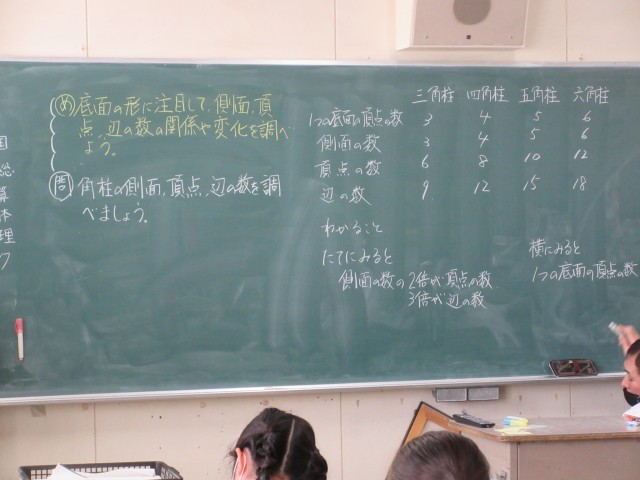 め 底面の形に注目して、側面、頂
点、辺の数の関係や変化を調べ
よう。
問 角柱の側面、頂点、辺の数を調
べましょう。
三角柱 四角柱 五角柱 六角柱
1つの底面の頂点の数 3 4 5 6
側面の数 3 4 5 6
頂点の数 6 8 10 12
辺の数 9 12 15 18
わかること
たてにみると
側面の数の2倍が頂点の数
3倍が辺の数
横にみると
1つの底面の頂点の数
国
総
算
体
理